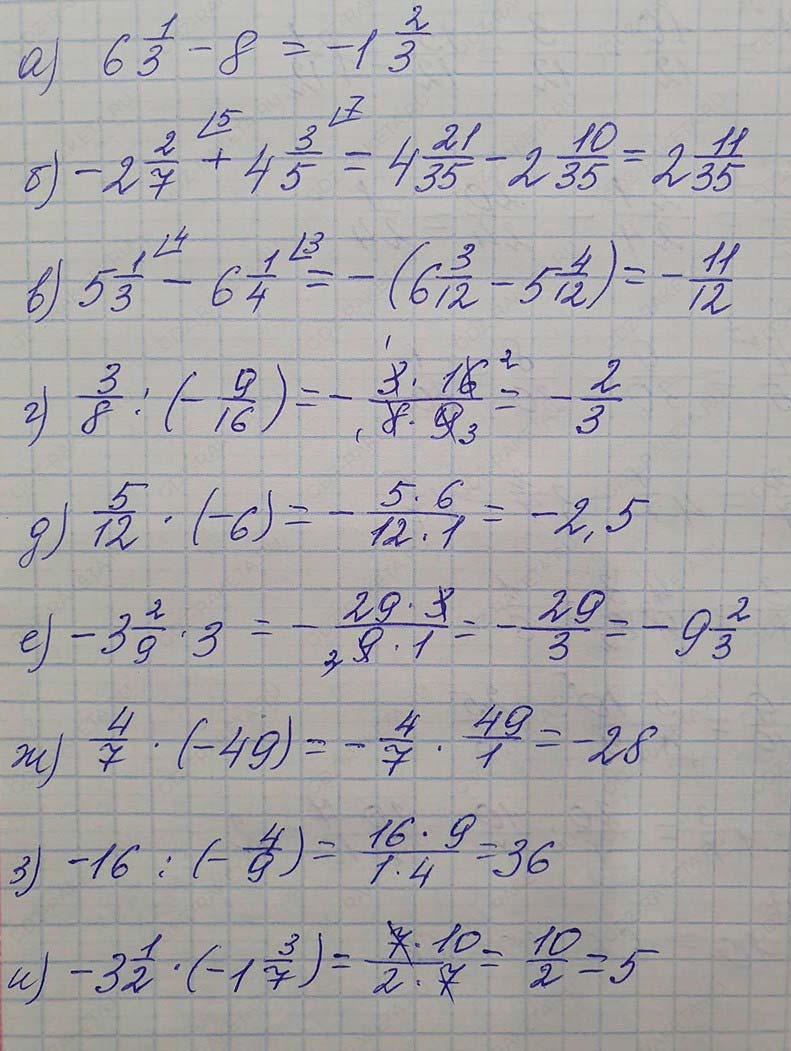 а) 6 1/3 - 8 = -1 2/3
б) -2 2/7 ⌊5 + 4 3/5 ⌊7 = 4 21/35 - 2 10/35 = 2 11/35
в) 5 1/3 ⌊4 - 6 1/4 ⌊3 = -(6 3/12 - 5 4/12) = - 11/12
г) 3/8 : (- 9/16) = - 3 1 · 16 2 / 1 8 · 9 3 = - 2/3
д) 5/12 · (-6) = - 5 · 6 / 12 · 1 = -2,5
е) -3 2/9 · 3 = - 29 · 3 / 3 9 · 1 = - 29/3 = -9 2/3
ж) 4/7 · (-49) = - 4/7 · 49/1 = -28
з) -16 : (- 4/9) = 16 · 9 / 1 · 4 = 36
и) -3 1/2 · (-1 3/7) = 7 · 10 / 2 · 7 = 10/2 = 5